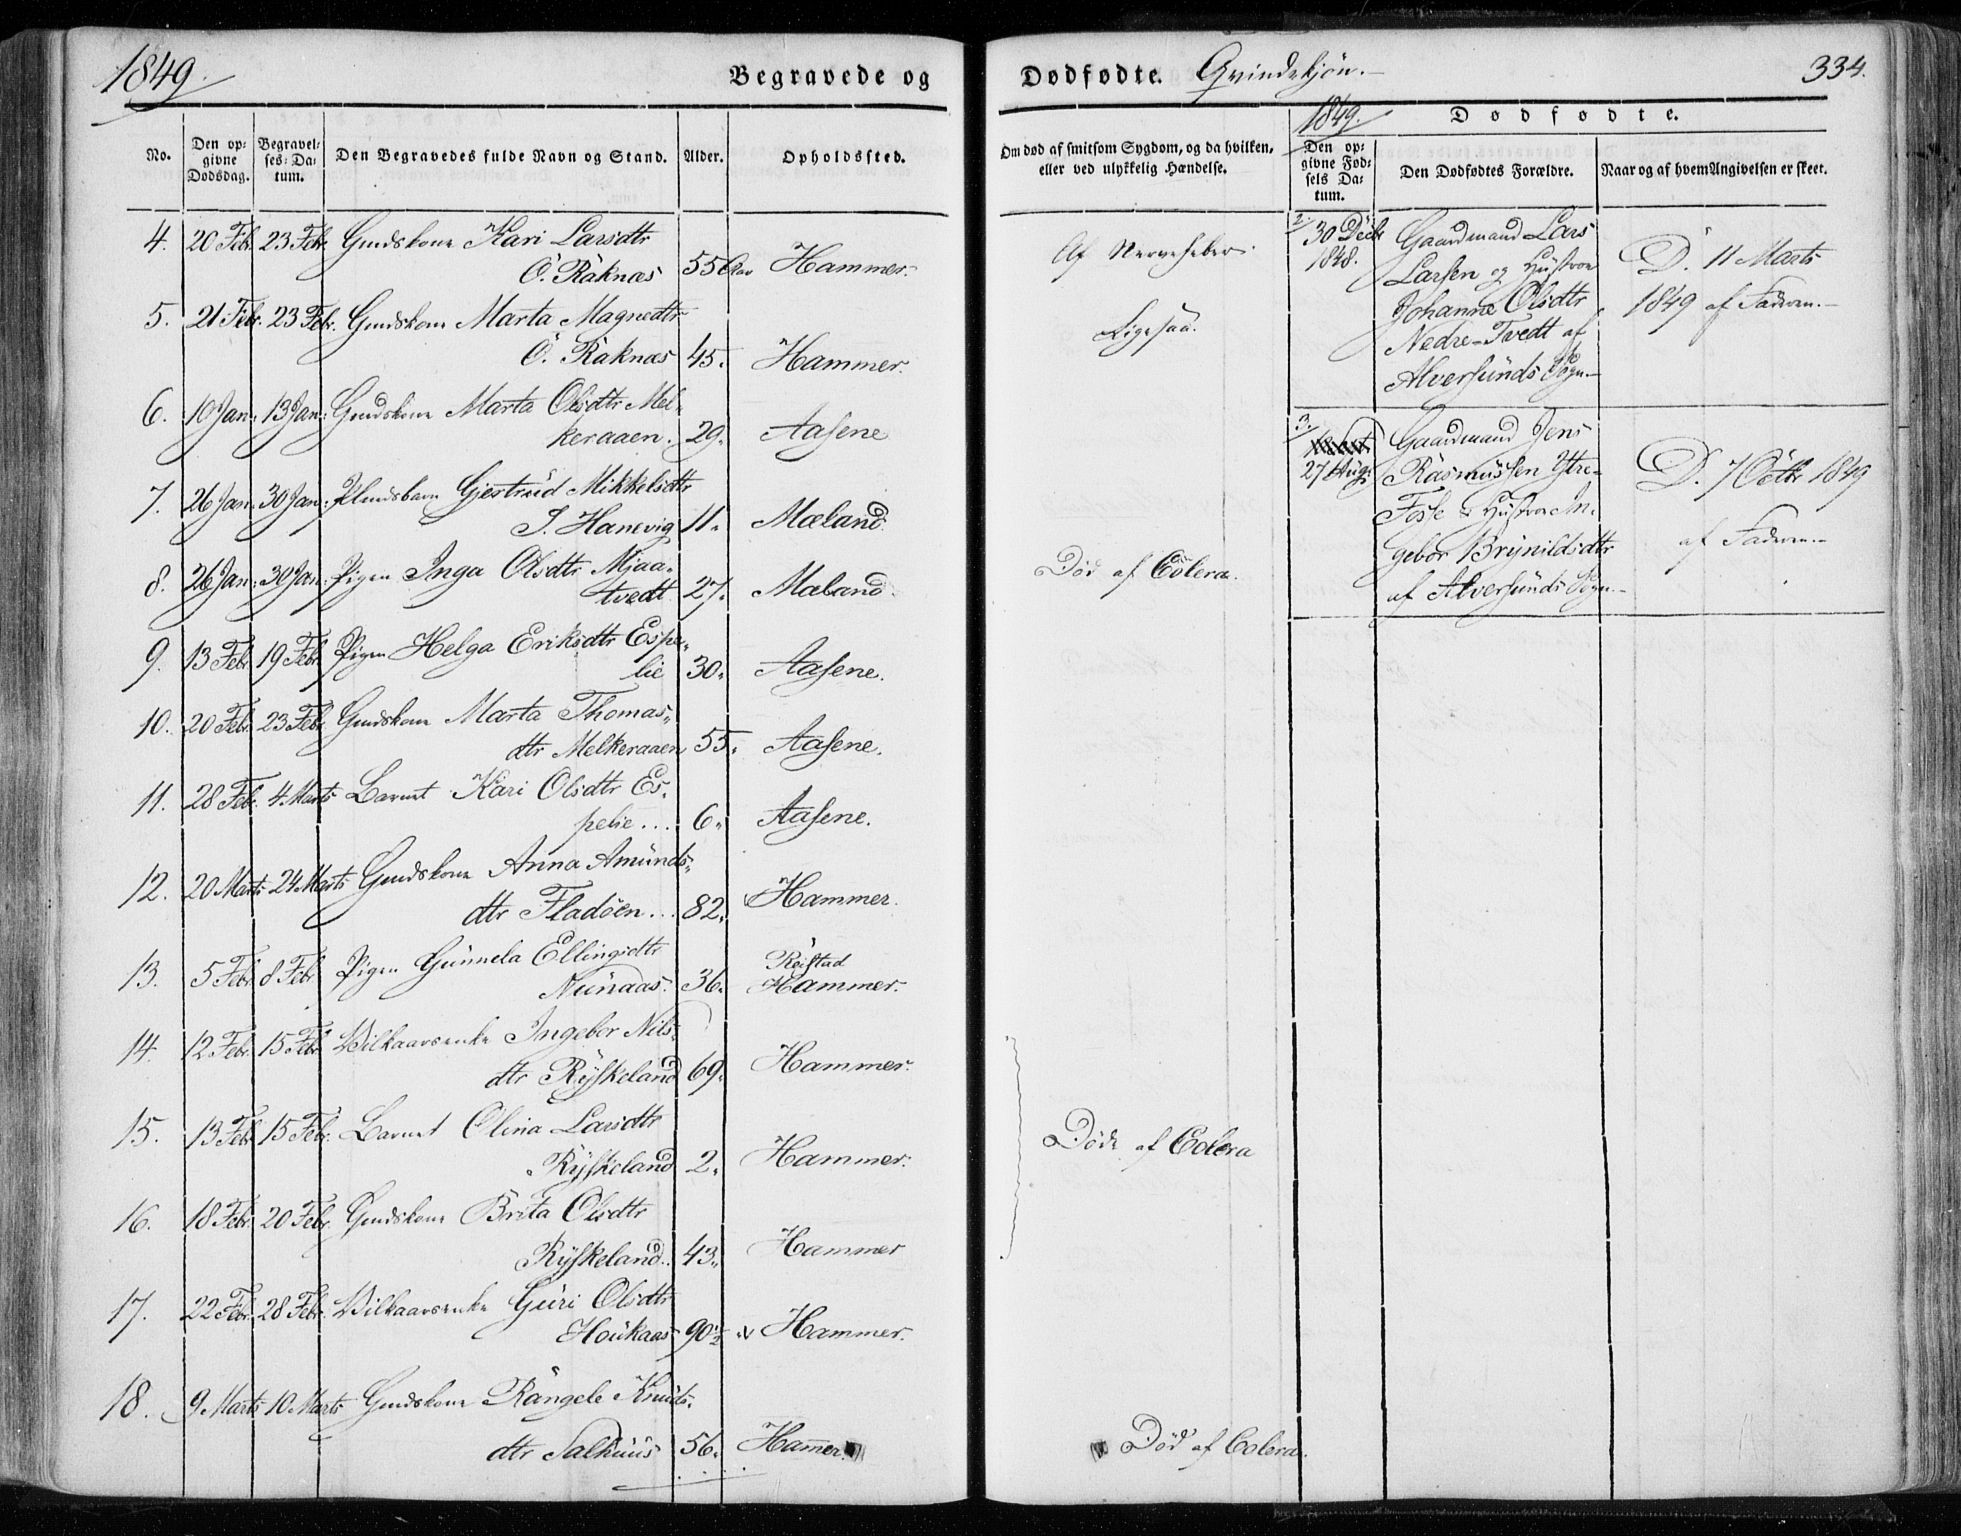 1849.
Begravede og
Dødfødte. Qvindekjön.
334.
No.
Den op-
givne
Dødsdag.
Begravel-
ses-Da-
tum.
Den Begravedes fulde Navn og Stand.
Alder.
Opholdssted.
Om død af smitsom Sygdom, og da hvilken,
eller ved ulykkelig Hændelse.
1849.
Dødfødte.
Den op-
givne Fød-
sels Da-
tum.
Den Dødfødtes Forældre.
Naar og af hvem Angivelsen er skeet.
4. 20 Febr. 23 Febr. Gmdskone Kari Larsdtr
Ö. Raknæs 55 Aar Hammer.
Af Nervefeber.
5. 21 Febr. 23 Febr. Gmdskone Marta Magnedtr
Ö. Raknæs 45. Hammer.
Ligesaa.
6. 10 Jan: 13 Jan: Gmdskone Marta Olsdtr Mel-
keraaen. 29. Aasene
7. 26 Jan: 30 Jan: Gjertrud Mikkelsdtr
I. Hanevig 11. Mæland
8. 26 Jan: 30 Jan: Pigen Inga Olsdtr Mjaa-
tvedt 27. Mæland.
Død af Colera.
9. 13 Febr 19 Febr Pigen Helga Eriksdtr Espe-
lie 30. Aasene.
10. 20 Febr. 23 Febr. Gmdskone Marta Thomas-
dtr Melkeraaen 55. Aasene.
11. 28 Febr. 4 Marts Barnet Kari Olsdtr Es-
pelie... 6. Aasene.
12. 20 Marts 24 Marts Gmdskone Anna Amunds-
dtr Fladöen... 82. Hammer.
13. 5 Febr. 8 Febr Pigen Gunnela Ellingsdtr
Reistad
Nunaas. 36. Hammer.
14. 12 Febr. 15 Febr Vilkaarsenke Ingebor Nils-
dtr Ryskeland 69. Hammer.
15. 13 Febr 15 Febr. Barnet Olina Larsdtr
Ryskeland 2. Hammer.
Døde af Colera
16. 18 Febr. 20 Febr. Gmdskone Brita Olsdtr
Ryskeland.. 43. Hammer
17. 22 Febr. 28 Febr. Vilkaarsenke Guri Olsdtr
Houkaas 90½ Hammer.
18. 9 Marts 10 Marts Gmdskone Rangele Knuds-
dtr Salhuus 56. Hamer.
Død af Colera.
2. 30 Decbr
1848.
Gaardmand Lars
Larsen og Hustroe
Johanne Olsdtr
Nedre-Tvedt af
Alversunds Sogn.
D. 11 Marts
1849 af Faderen.
3.
27 Aug:
Gaardmand Jens
Rasmussen Ytre-
Fosse & Hustroe In-
gebor Brynildsdtr
af Alversunds Sogn.
D. 7 Octbr 1849
af Faderen.